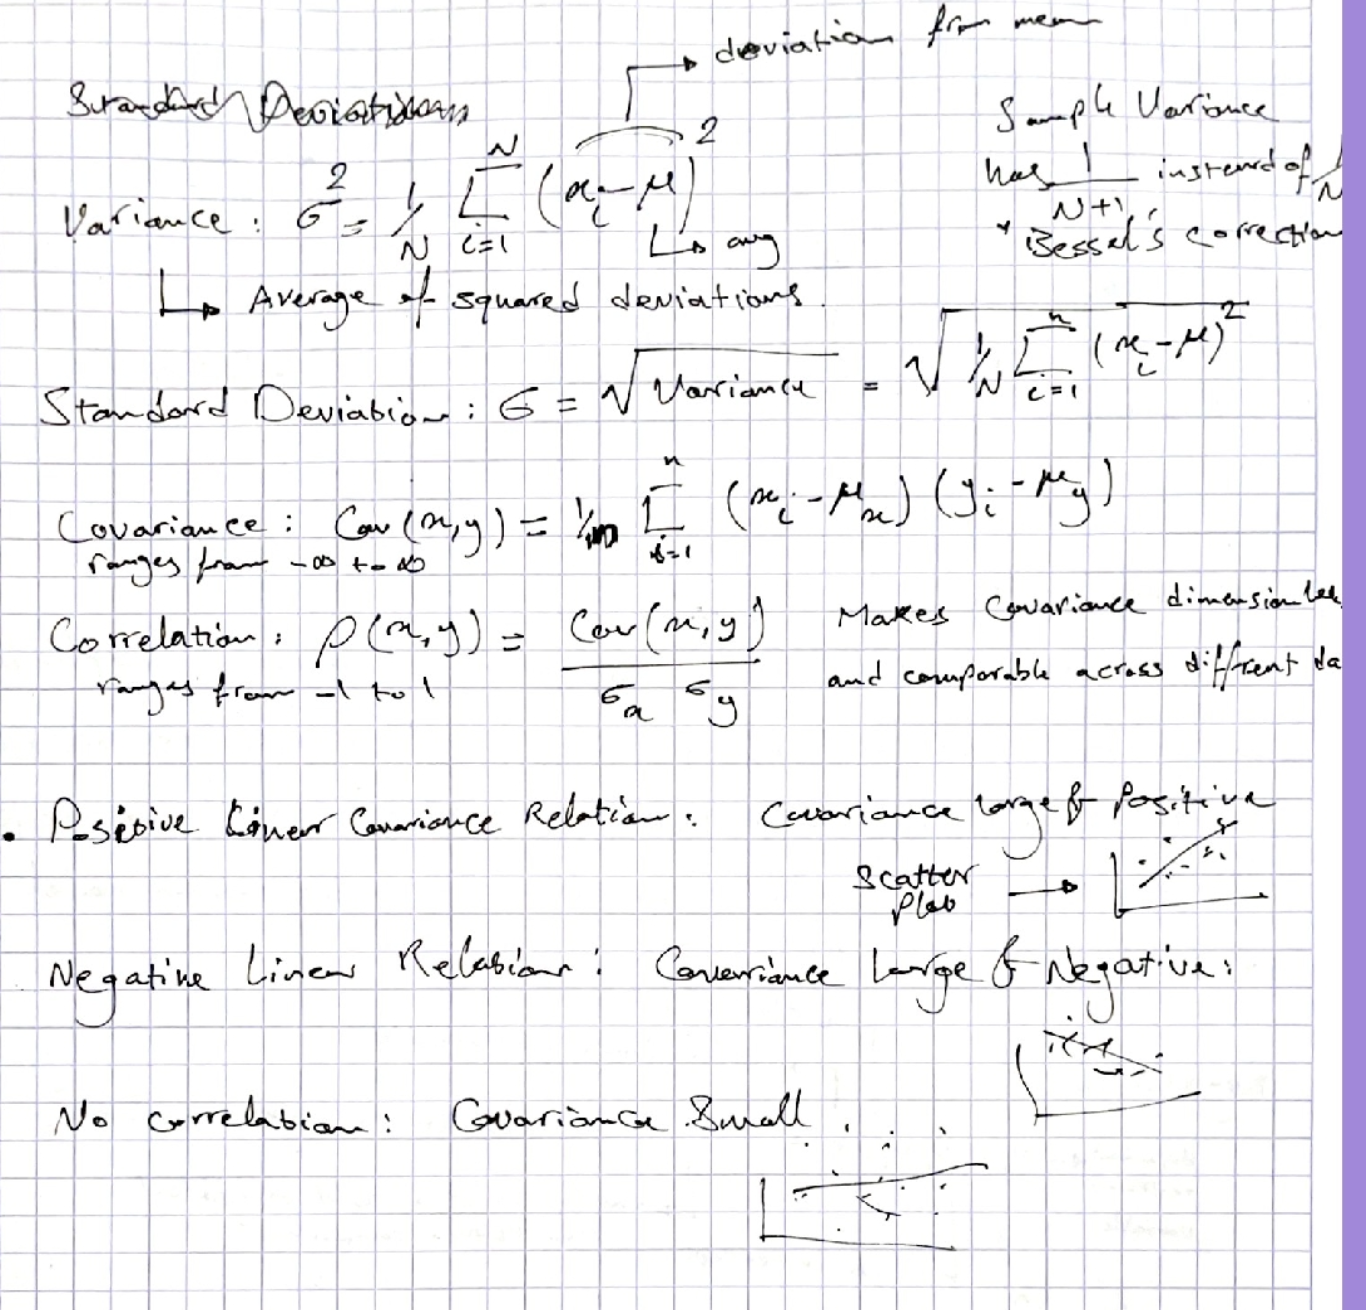 deviation from mean
Standard Deviation
Sample Variance
has 1/N+1 instead of 1/N
* Bessel's correction
Variance : σ² = 1/N Σ_{i=1}^{N} (x_i - μ)²
avg
Average of squared deviations.
Standard Deviation : σ = √Variance = √(1/N Σ_{i=1}^{n} (x_i - μ)²)
Covariance : Cov(x,y) = 1/n Σ_{i=1}^{n} (x_i - μ_x) (y_i - μ_y)
ranges from -∞ to ∞
Correlation : ρ(x,y) = Cov(x,y) / σ_x σ_y
ranges from -1 to 1
Makes Covariance dimensionless
and comparable across different da
• Positive Linear Covariance Relation : Covariance large & Positive
Scatter
Plot
Negative Linear Relation : Covariance Large & Negative :
No correlation : Covariance Small